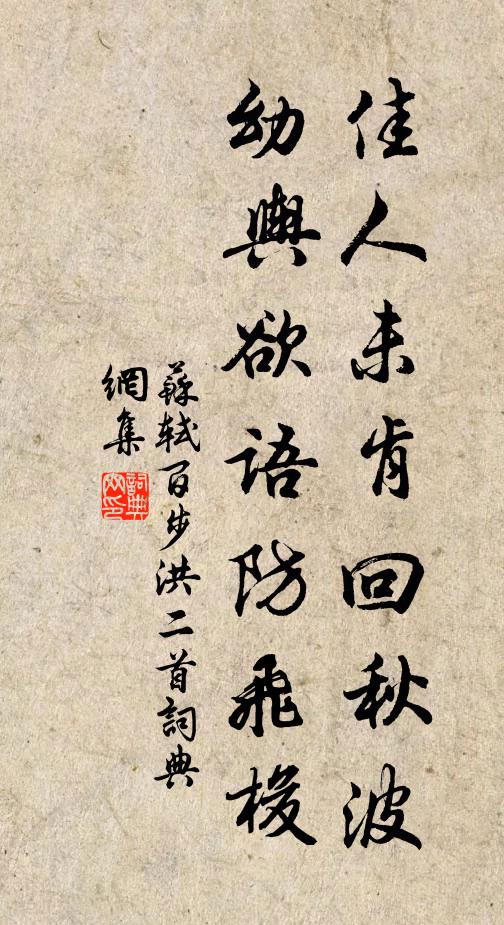 佳人未肯回秋波
幼輿欲語防飛梭
蘇軾百步洪二首詞典
網集
詞典
网印